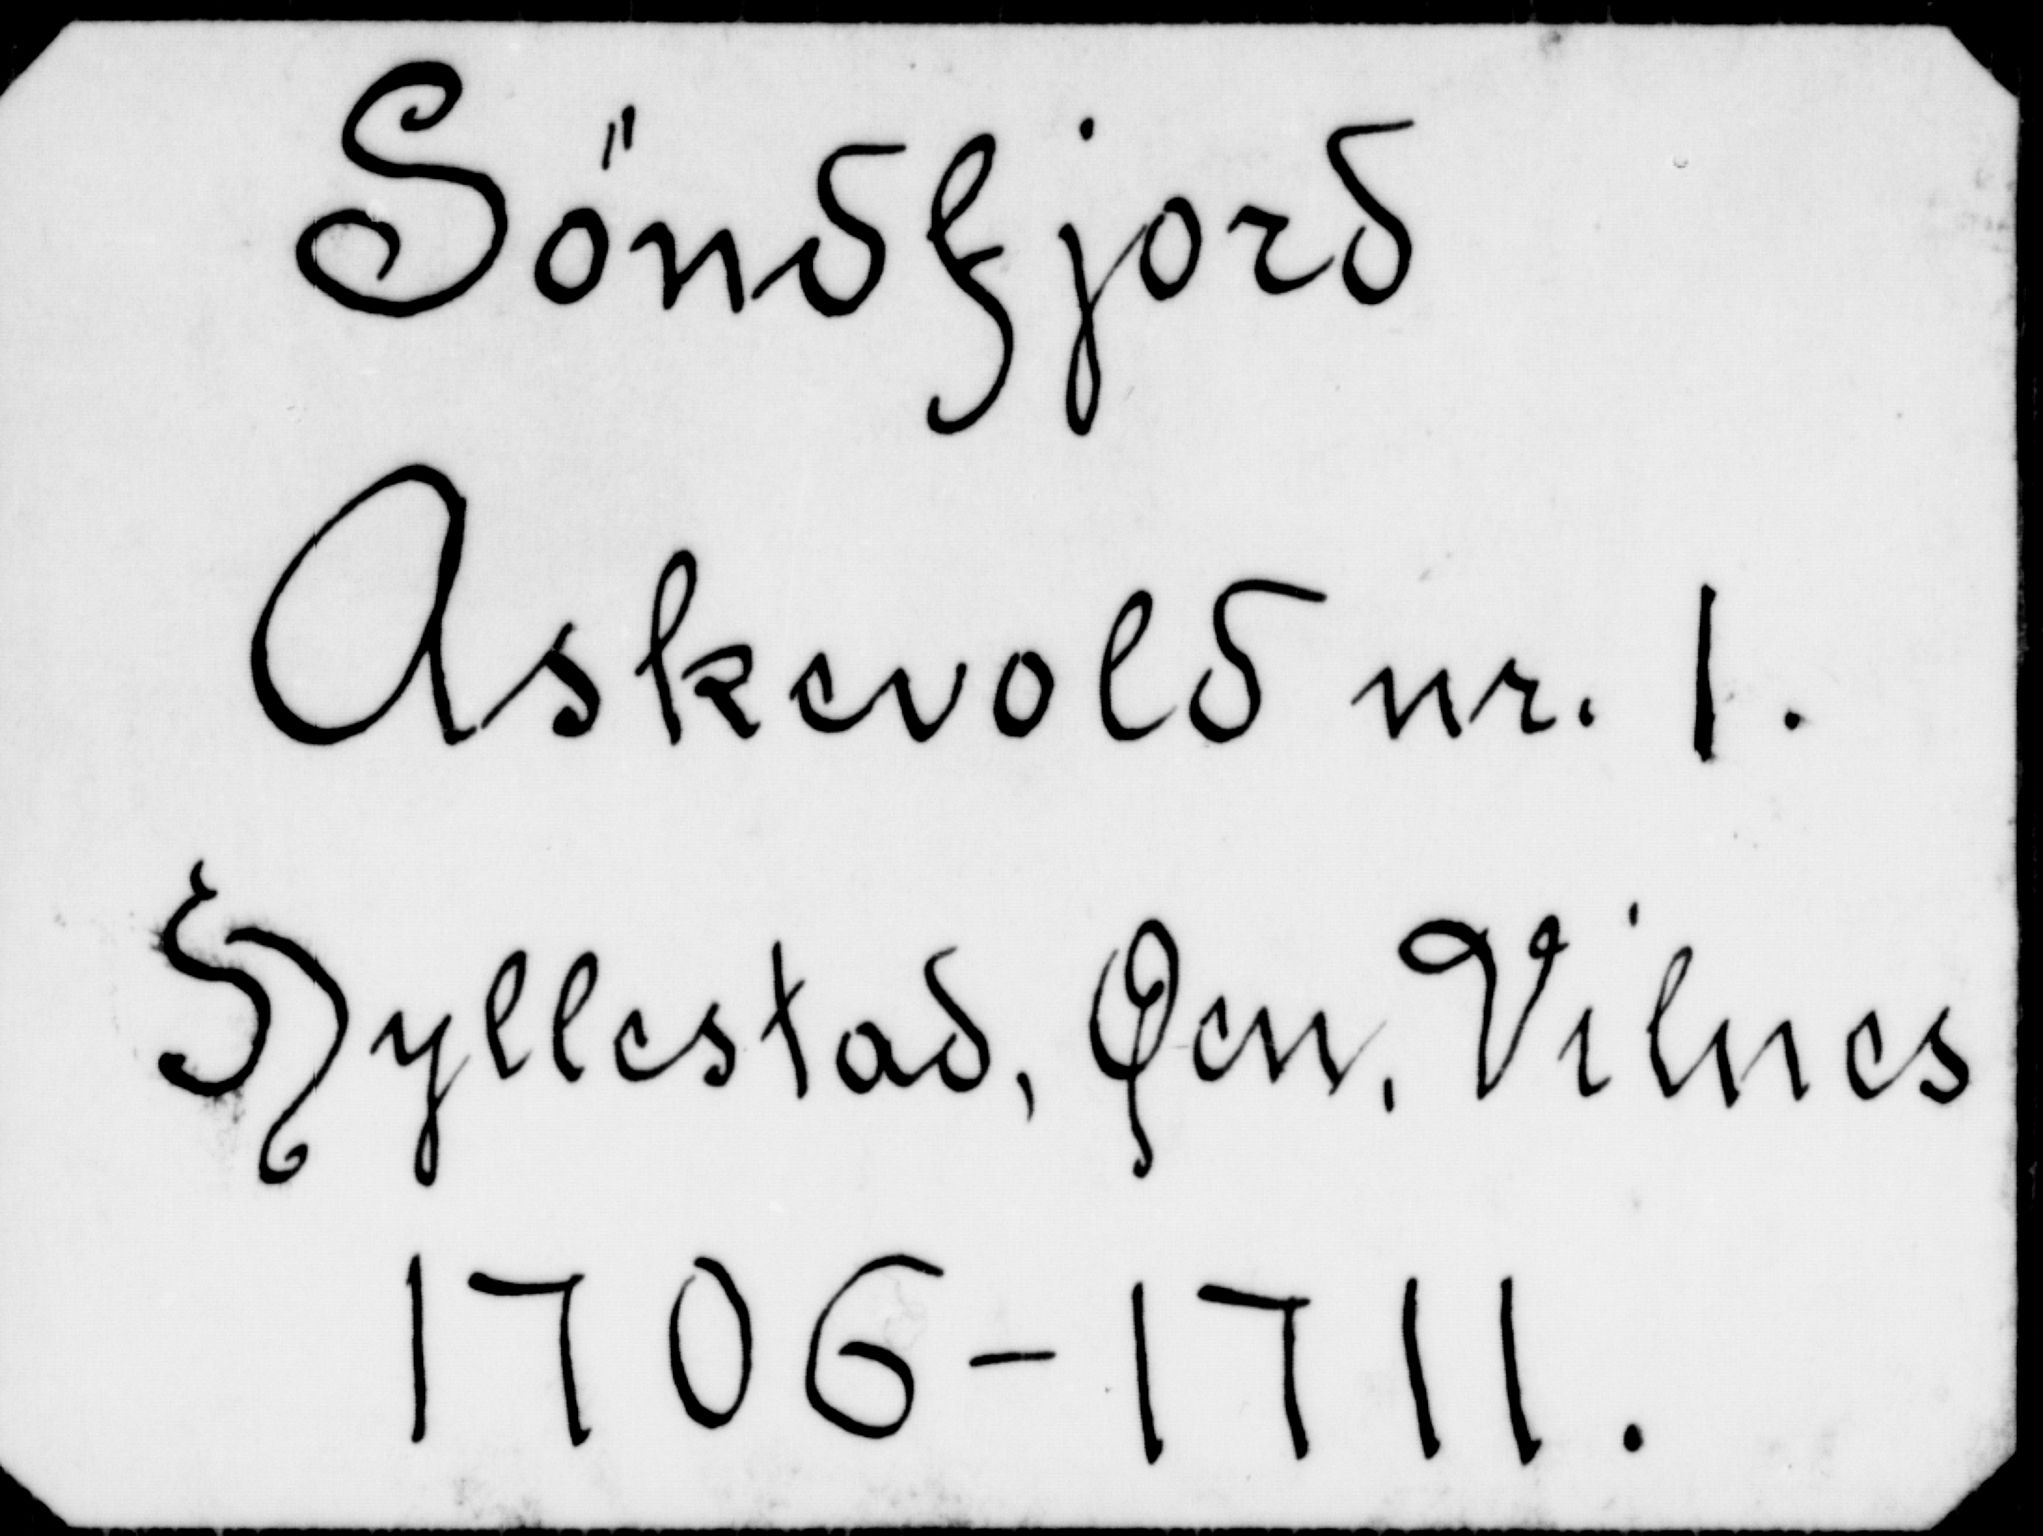 Söndfjord
Askevold nr. 1.
Hyllestad, Øen, Vilnes
1706-1711.